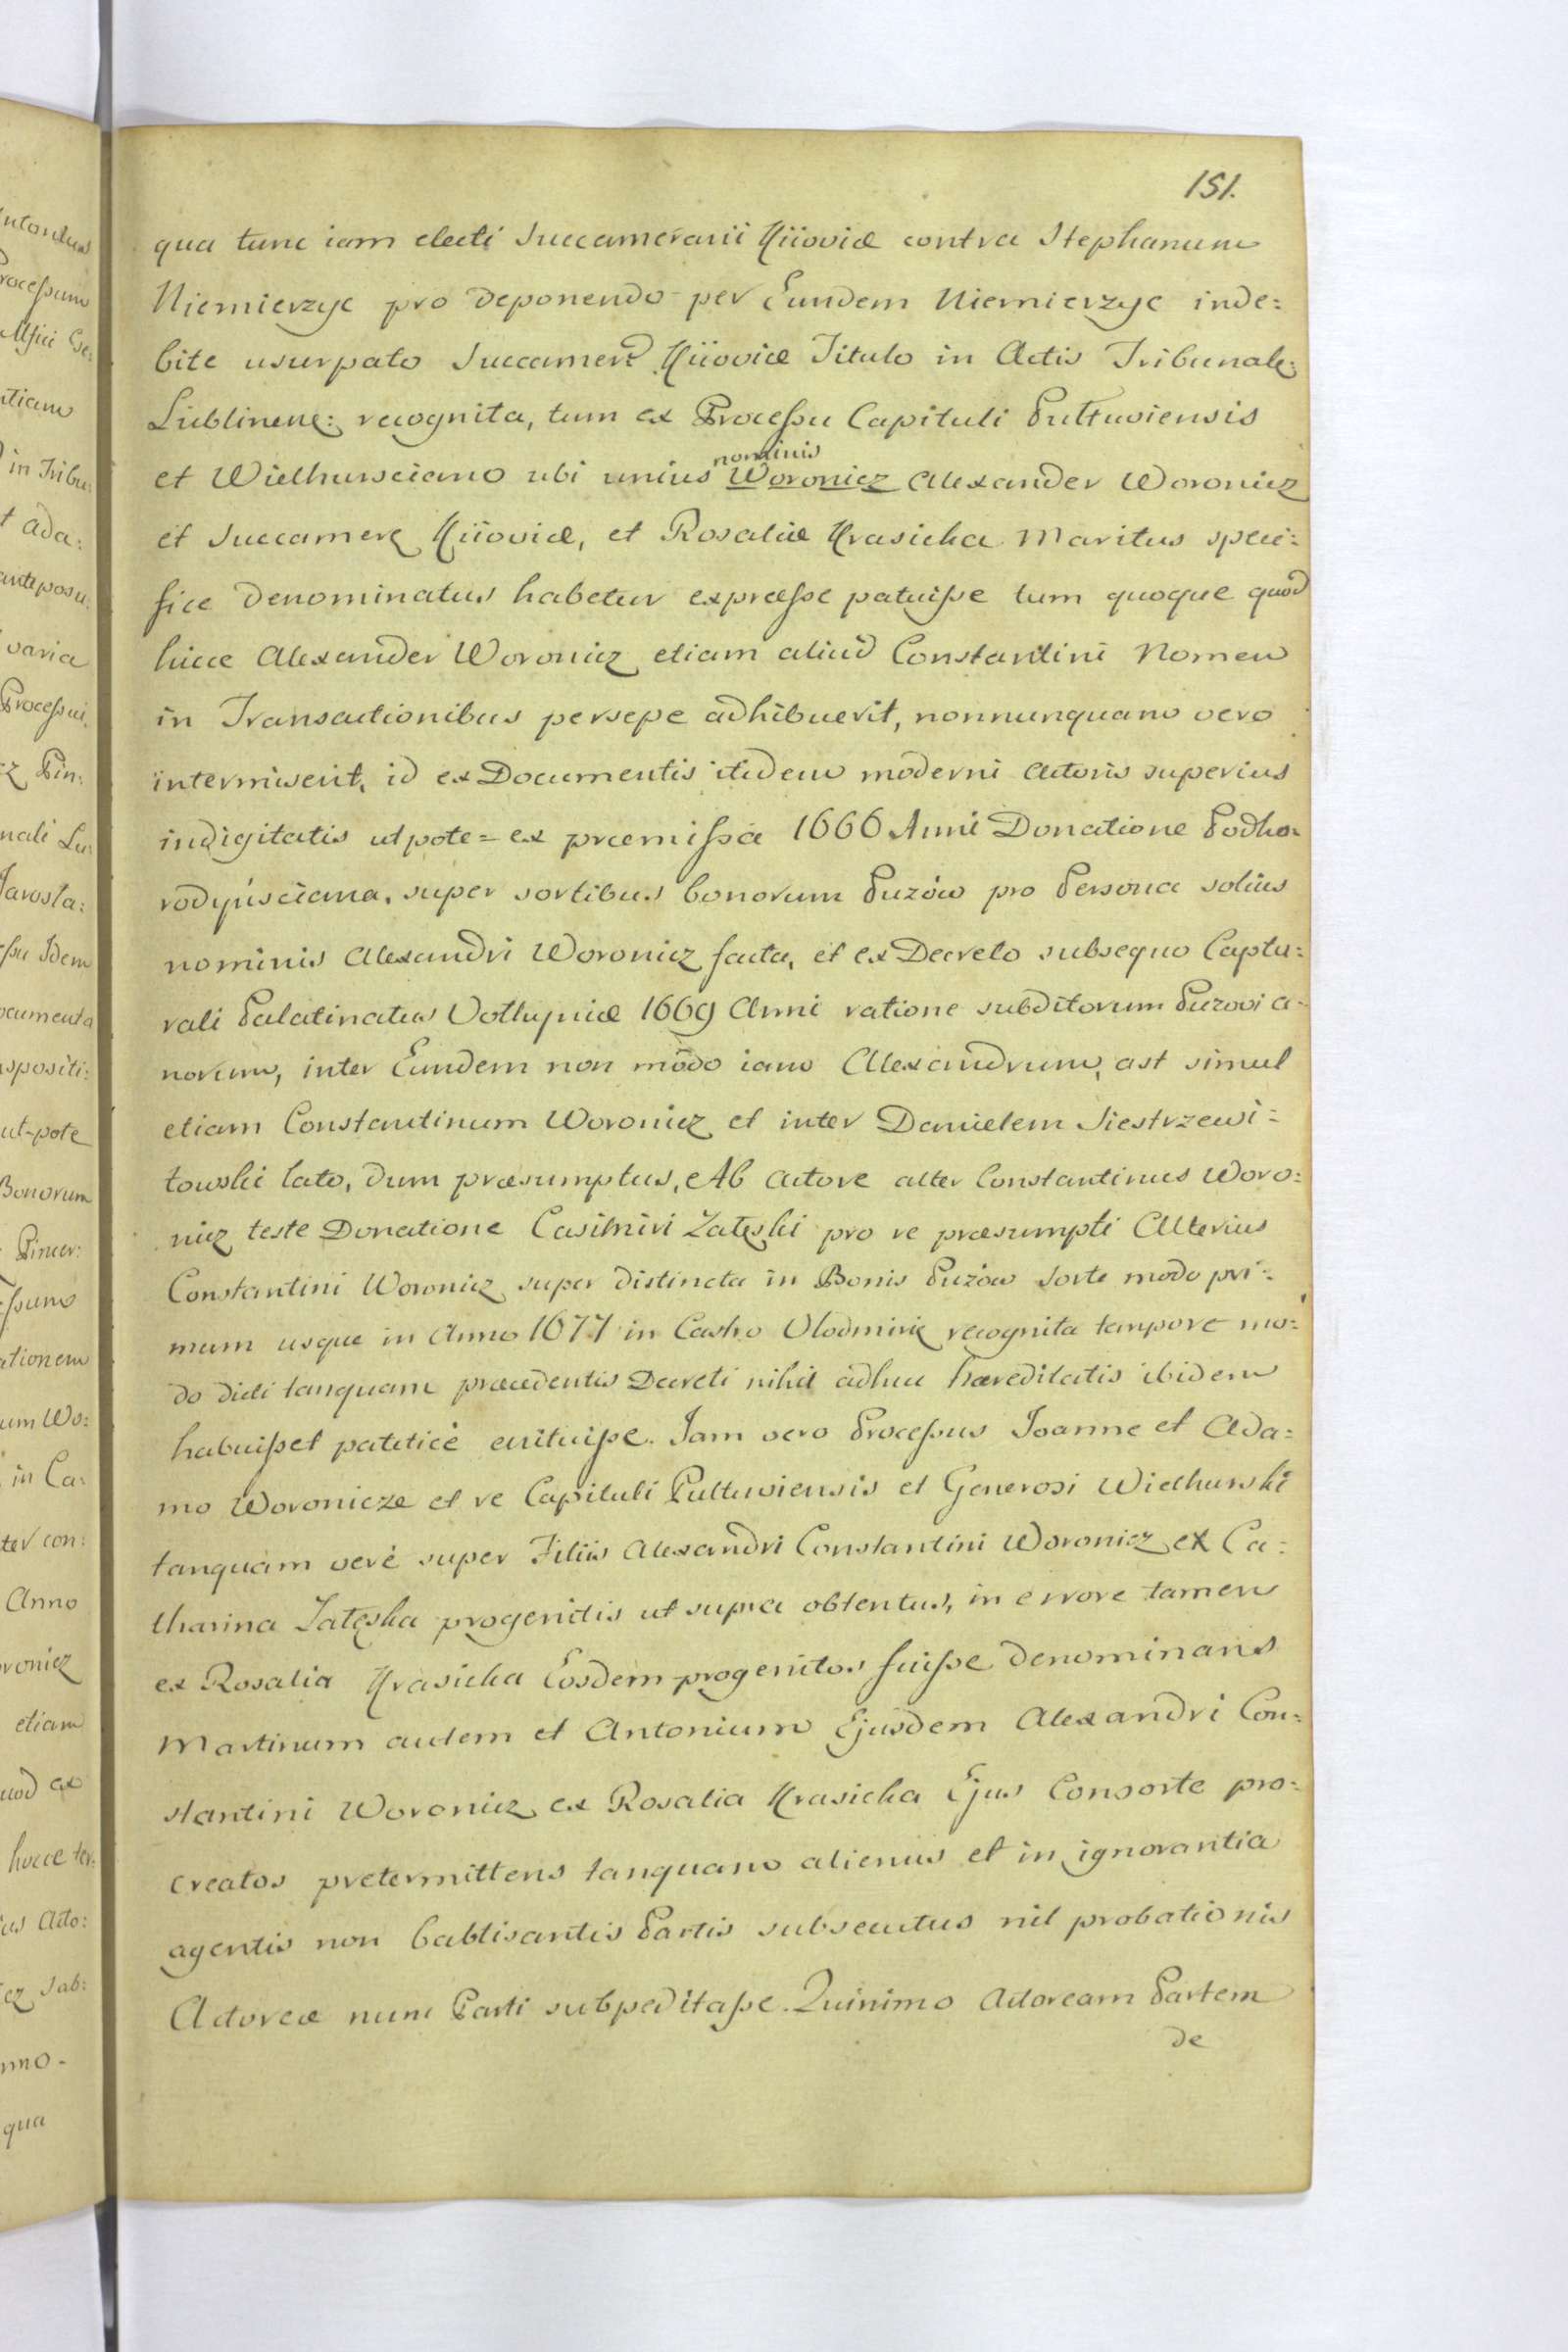 151.
qua tunc iam electi Succamerarii Kiioviæ contra Stephanum
Niemierzyc pro deponendo per Eundem Niemierzyc inde=
bite usurpato Succamerd Kiioviæ Titulo in Actis Tribunale:
Lublinene: recognita, tum ex Processu Capituli Pultuviensis
nominis
et Wielhursciano ubi unius Woronicz Alexander Woronicz
et Succamere Kiioviæ, et Rosaliæ Krasicka Maritus speci=
fice denominatus habetur expresse patuisse tum quoque quod
hicce Alexander Woronicz etiam aliud Constantini Nomen
in Transactionibus persepe adhibuerit, nonnunquam vero
intermiserit, id ex Documentis itidem moderni Actoris superius
indigitatis utpote= ex præmissa 1666 Anni Donatione Podho=
rodyńsciana, super sortibus bonorum Puzów pro Persona solius
nominis Alexandri Woronicz facta, et ex Decreto subsequo Captu=
rali Palatinatus Volhyniæ 1669 Anni ratione subditorum Puzovia=
norum, inter Eundem non modo iam Alexandrum, ast simul
etiam Constantinum Woronicz et inter Danielem Siestrzewi=
towski lato, dum præsumptus, Ab Actore alter Constantinus Woro=
nicz teste Donatione Casimiri Załęski pro re præsumpti Alterius
Constantini Woronicz super distincta in Bonis Puzów Sorte modo pri=
mum usque in Anno 1677 in Castro Vlodmirie recognita tempore mo=
do dicti tanquam præcedentis Decreti nihil adhuc hæreditatis ibidem
habuisset pateticè enituisse. Jam vero Processus Joanne et Ada=
mo Woronicze et re Capituli Pultuviensis et Generosi Wielhurski
tanquam verè super Filiis Alexandri Constantini Woronicz ex Ca=
tharina Załęska progenitis ut supra obtentus, in errore tamen
ex Rosalia Krasicka Eosdem progenitos fuisse denominans
Martinum autem et Antonium Ejusdem Alexandri Con=
stantini Woronicz ex Rosalia Krasicka Ejus Consorte pro=
creatos pretermittens tanquam alienus et in ignorantia
agentis non babtisantis Partis subsecutus nil probationis
Actoreæ nunc Parti subpeditasse. Quinimo Actoream Partem
de